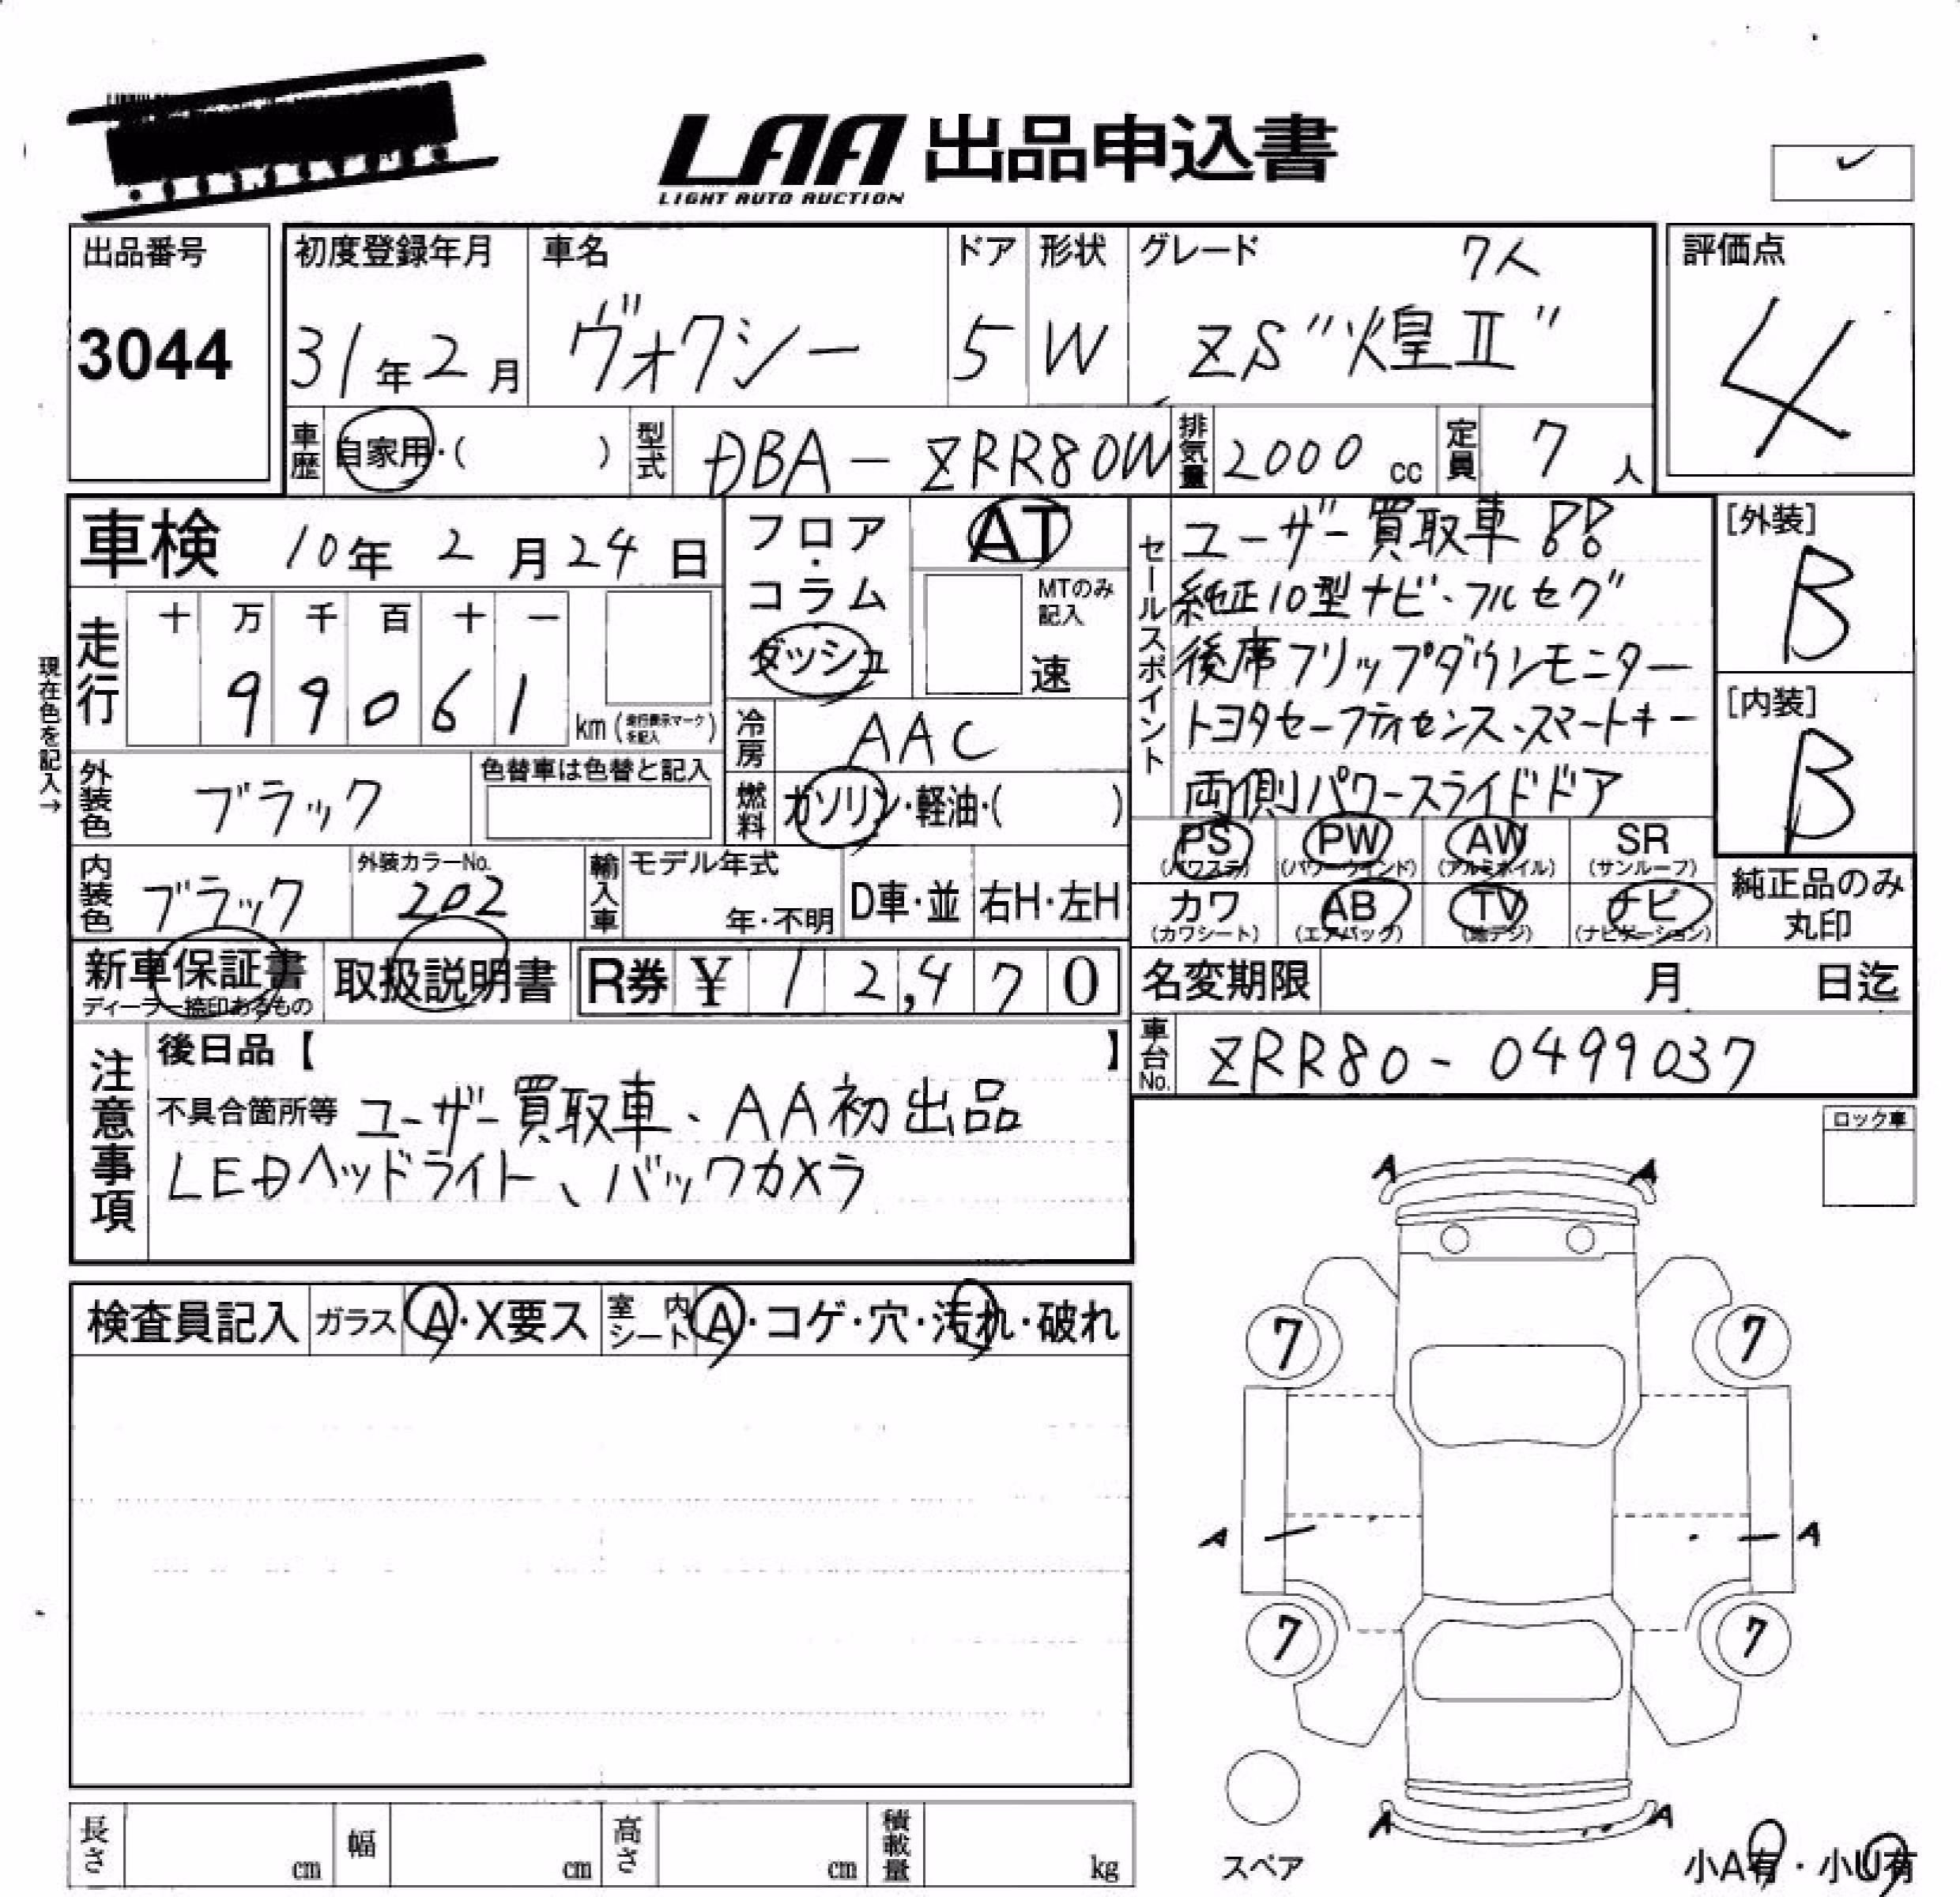 LAA 出品申込書
LIGHT AUTO AUCTION
出品番号
3044
初度登録年月
31年2月
車名
ヴォクシー
ドア
5
形状
W
グレード 7人
ZS"煌Ⅱ"
評価点
4
車歴 自家用・( )
型式 DBA-ZRR80W
排気量 2000 cc
定員 7人
車検 10年 2月24日
フロア・コラム
ダッシュ
AT
MTのみ記入
速
セールスポイント
ユーザー買取車!!
純正10型ナビ・フルセグ
後席フリップダウンモニター
トヨタセーフティセンス、スマートキー
両側パワースライドドア
[外装]
B
[内装]
B
現在色を記入→
走行
十 万 千 百 十 一
99061
km (走行表示マークを記入)
冷房 AAC
外装色 ブラック
色替車は色替と記入
燃料 ガソリン・軽油・( )
内装色 ブラック
外装カラーNo.
202
輸入車
モデル年式
年・不明
D車・並
右H・左H
PS
(パワステ)
PW
(パワーウインド)
AW
(アルミホイル)
SR
(サンルーフ)
カワ
(カワシート)
AB
(エアバック)
TV
(地デジ)
ナビ
(ナビゲーション)
純正品のみ
丸印
新車保証書
ディーラー捺印あるもの
取扱説明書
R券 ¥12,470
名変期限 月 日迄
車台No. ZRR80-0499037
注意事項
後日品【 】
不具合箇所等 ユーザー買取車、AA初出品
LEDヘッドライト、バックカメラ
ロック車
検査員記入
ガラス A・X要ス
室内シート A・コゲ・穴・汚れ・破れ
A A
7 7
A A
7 7
A A
スペア
小A有・小U有
長さ cm
幅 cm
高さ cm
積載量 kg